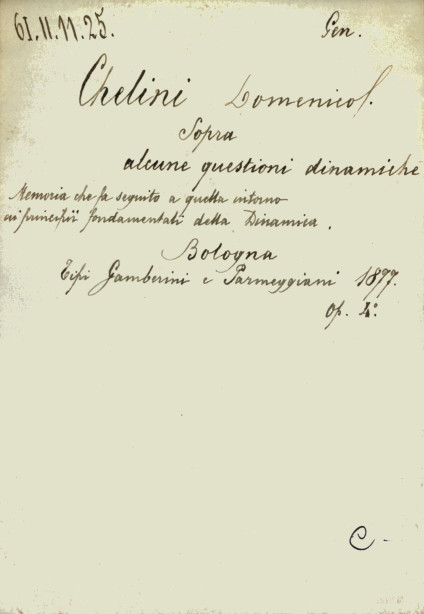 61.II.11.25.
Gen.
Chelini Domenico.
Sopra
alcune questioni dinamiche
Memoria che fa seguito a quella intorno
ai principii fondamentali della Dinamica.
Bologna
Tipi Gamberini e Parmeggiani 1877.
Op. 4º.
C-